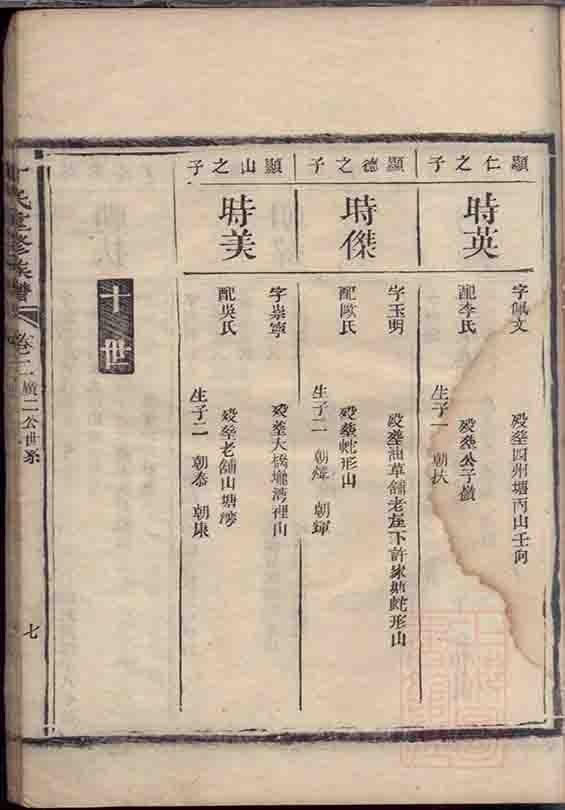 顯仁之子
時英
字佩文
歿葬四州塘丙山壬向
配李氏
歿葬公子嶺
生子一 朝扶
顯德之子
時傑
字玉明
歿葬油草舖老屋下許家㘭蛇形山
配歐氏
歿葬蛇形山
生子二 朝煒 朝輝
顯山之子
時美
字崇寧
歿葬大橋壠湾裡山
配吳氏
歿葬老舖山塘湾
生子二 朝泰 朝康
十世
氏重修族譜
卷二
廣二公世系
七